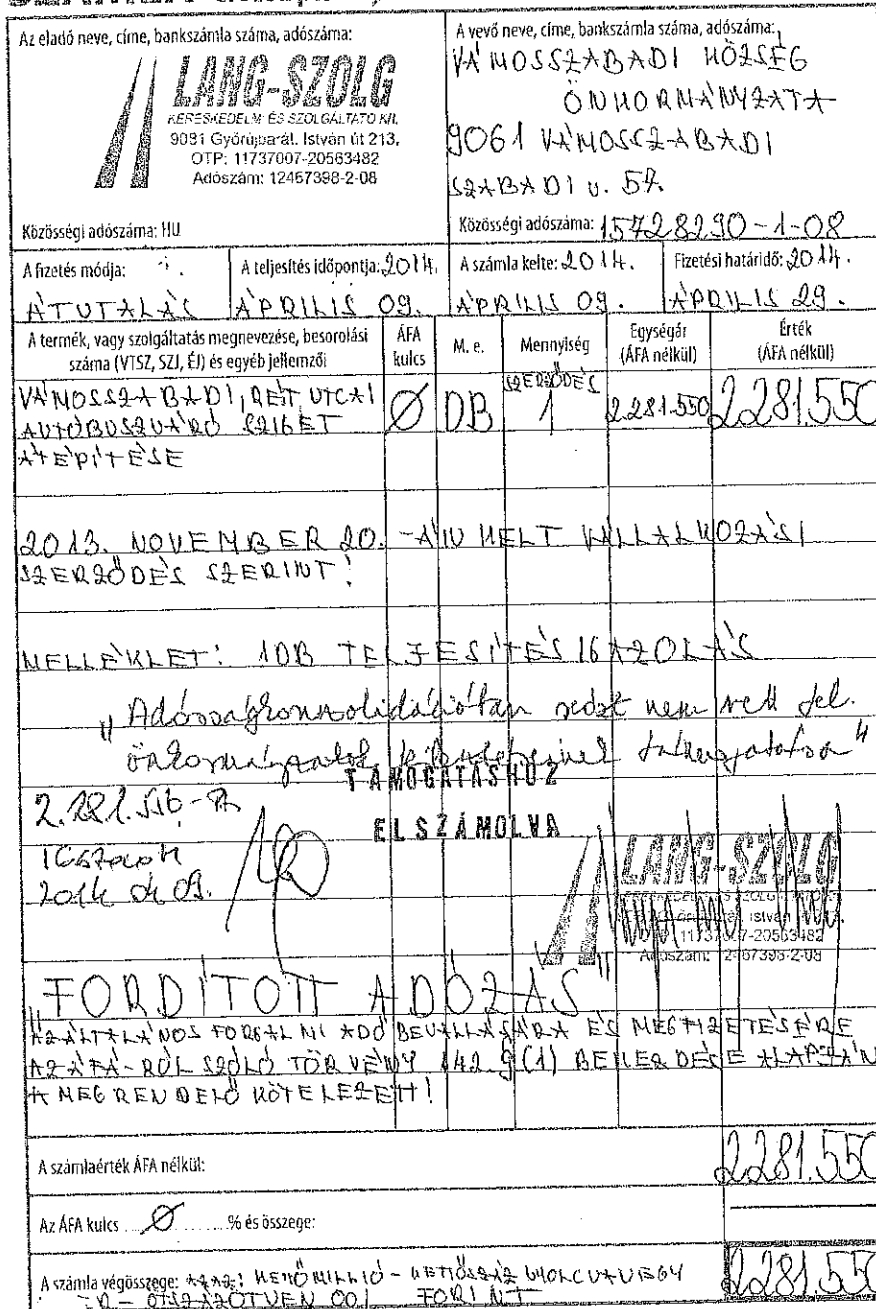 Az eladó neve, címe, bankszámla száma, adószáma:
LANG-SZOLG
KERESKEDELMI ÉS SZOLGÁLTATÓ Kft.
9081 Győrújbarát. István út 213.
OTP: 11737007-20563482
Adószám: 12467398-2-08
Közösségi adószáma: HU
A vevő neve, címe, bankszámla száma, adószáma:
VÁMOSSZABADI KÖZSÉG
ÖNKORMÁNYZATA
9061 VÁMOSSZABADI
SZABADI u. 57.
Közösségi adószáma: 15728290-1-08
A fizetés módja:
ÁTUTALÁS
A teljesítés időpontja: 2014.
ÁPRILIS 09.
A számla kelte: 2014.
ÁPRILIS 09.
Fizetési határidő: 2014.
ÁPRILIS 29.
A termék, vagy szolgáltatás megnevezése, besorolási
száma (VTSZ, SZJ, ÉJ) és egyéb jellemzői
ÁFA
kulcs
M. e.
Mennyiség
Egységár
(ÁFA nélkül)
Érték
(ÁFA nélkül)
VÁMOSSZABADI, RÉT UTCAI
AUTÓBUSZVÁRÓ SZIGET
ÁTÉPÍTÉSE
Ø DB SZERZŐDÉS 1 2.281.550 2.281.550
2013. NOVEMBER 20. -ÁN KELT VÁLLALKOZÁSI
SZERZŐDÉS SZERINT!
MELLÉKLET: 1DB TELJESÍTÉS IGAZOLÁS
"Adósságkonszolidációban részt nem vett fel.
önkormányzatok fejlesztéseinek támogatása"
TÁMOGATÁSHOZ
ELSZÁMOLVA
Igazolom
2014 04 09.
LANG-SZOLG
"FORDÍTOTT ADÓZÁS"
AZ ÁLTALÁNOS FORGALMI ADÓ BEVALLÁSÁRA ÉS MEGFIZETÉSÉRE
AZ ÁFA-RÓL SZÓLÓ TÖRVÉNY 142 § (1) BEKEZDÉSE ALAPJÁN
A MEGRENDELŐ KÖTELEZETT!
A számlaérték ÁFA nélkül: 2.281.550
Az ÁFA kulcs Ø % és összege:
A számla végösszege: AZAZ: KETTŐMILLIÓ - KETTŐSZÁZNYOLCVANEGY
EZER - ÖTSZÁZÖTVEN 00/ FORINT
2.281.55